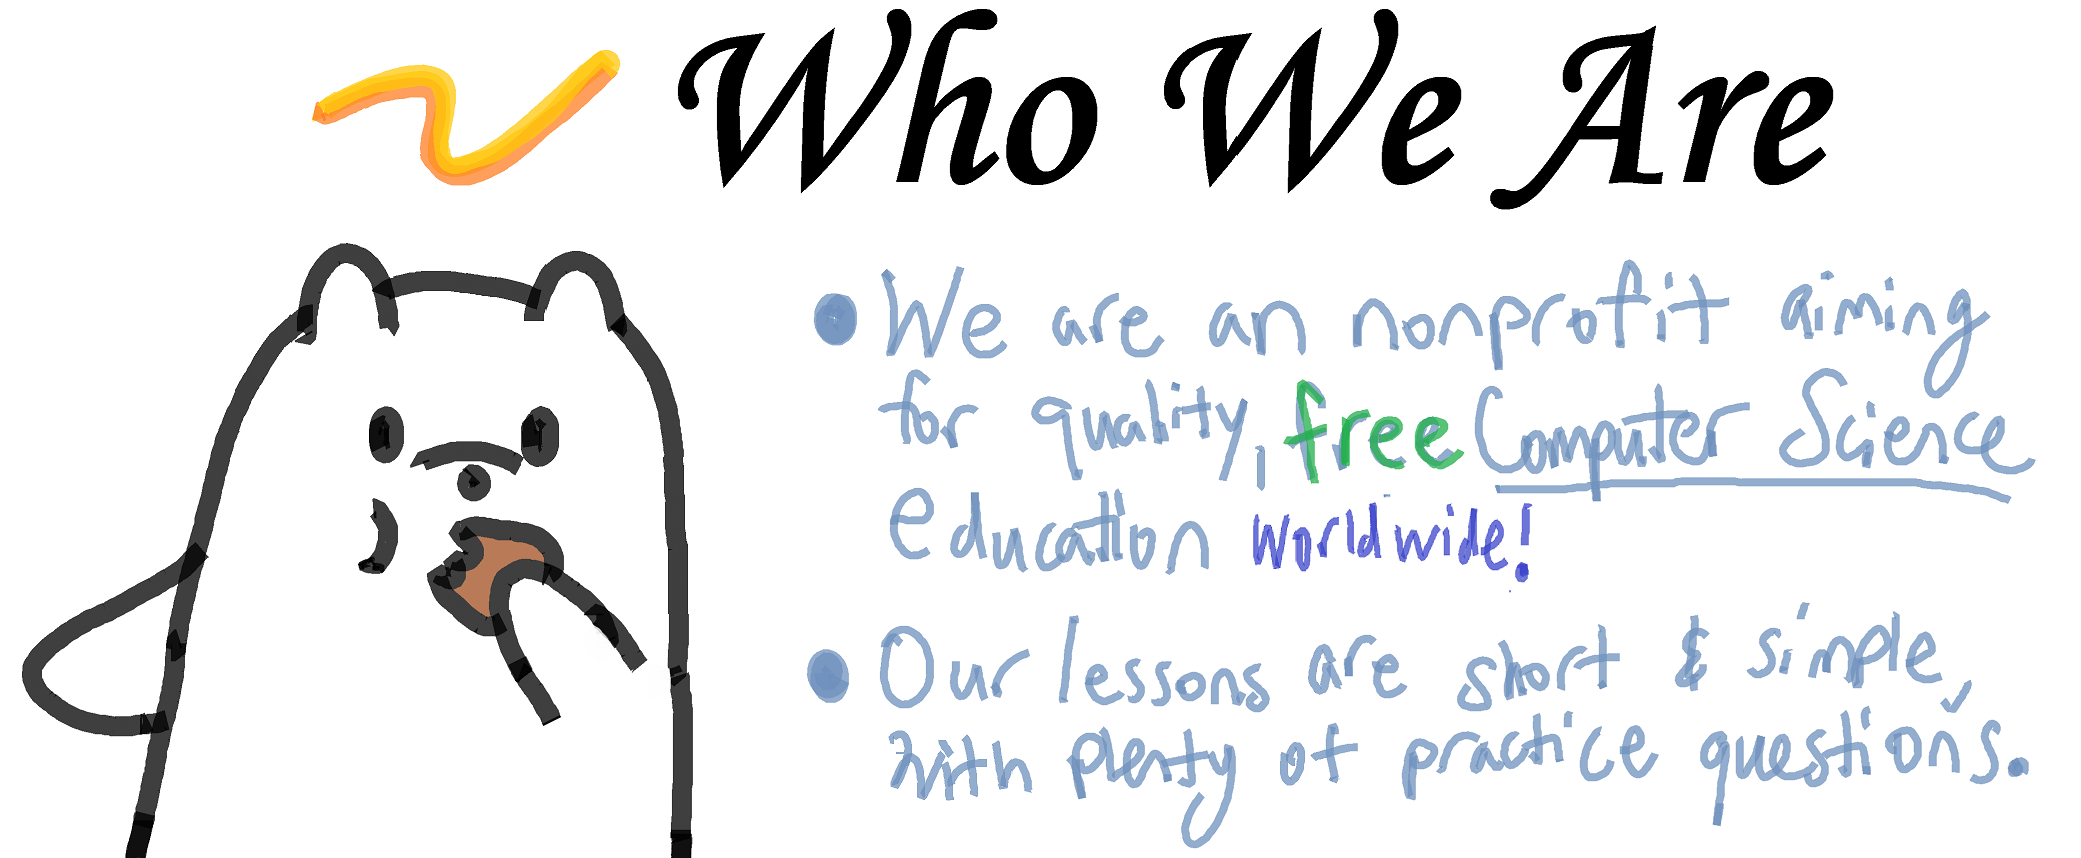 Who We Are
We are an nonprofit aiming
for quality, free Computer Science
education worldwide!
Our lessons are short & simple,
with plenty of practice questions.